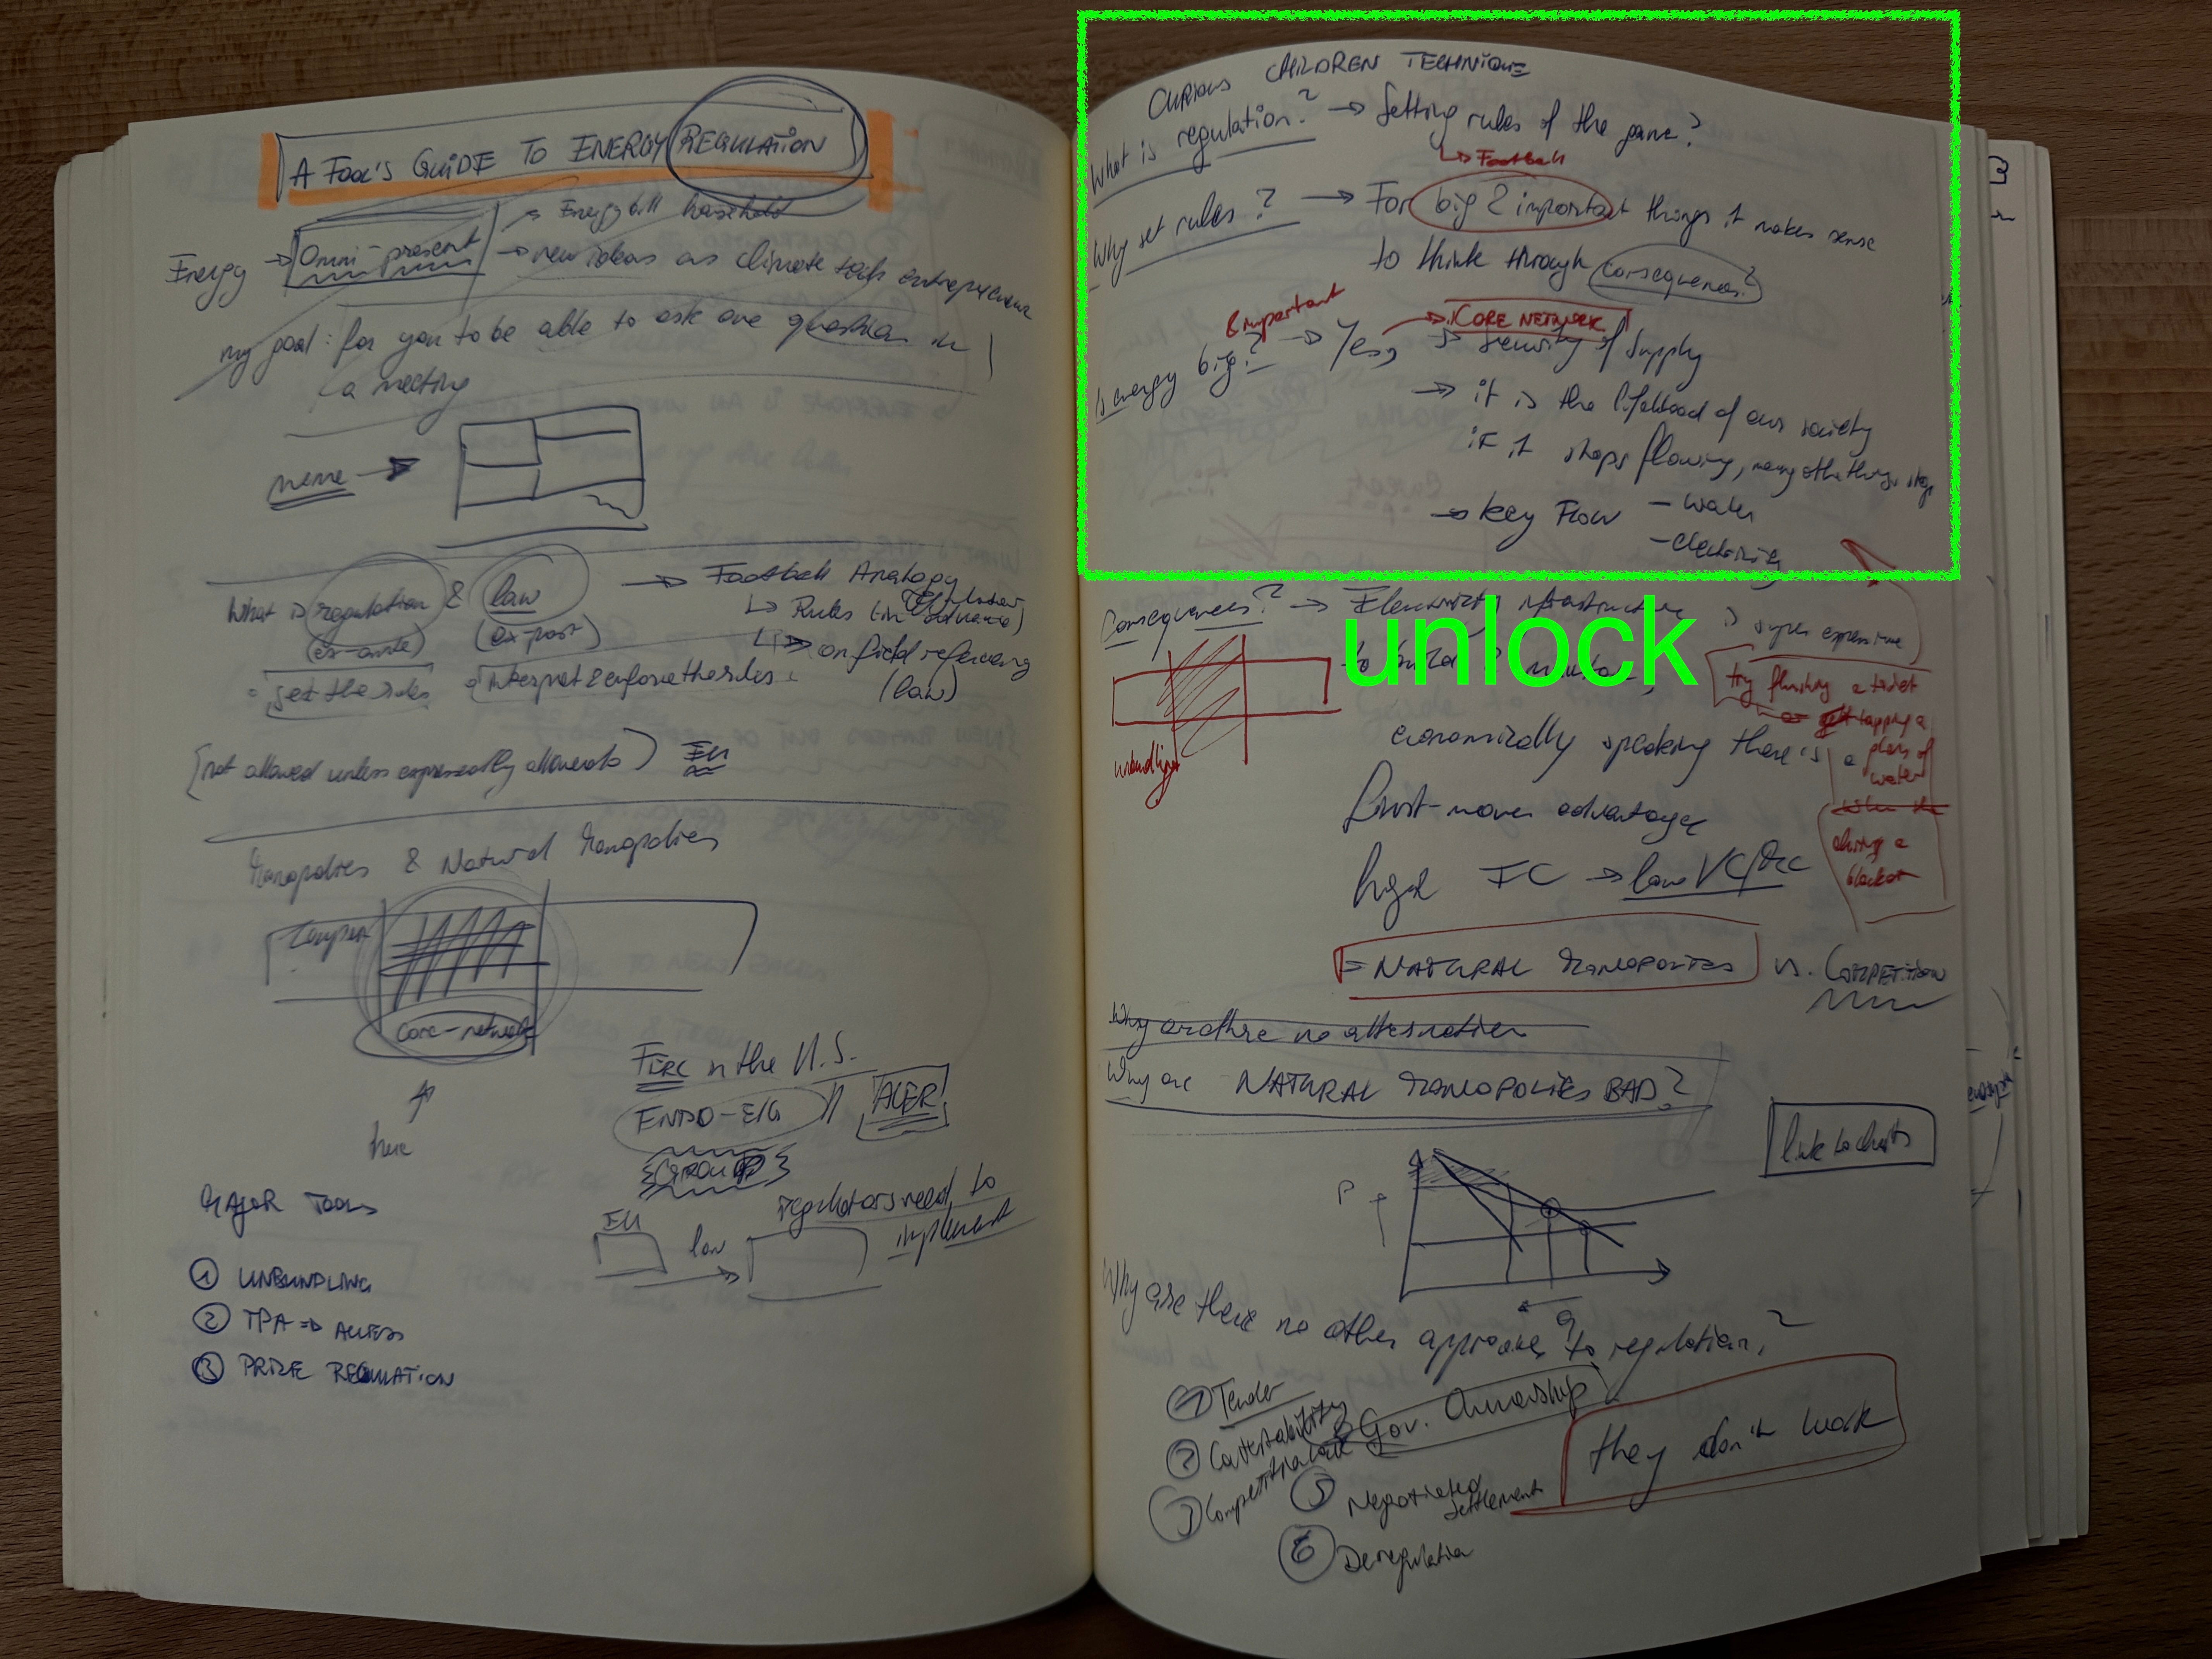 A FOOL'S GUIDE TO ENERGY REGULATION
Energy → Omni-present → Energy bill household
→ new ideas as climate tech entrepreneur
my goal: for you to be able to ask one question in
a meeting
meme →
What is regulation & law → Football Analogy
(ex-ante) (ex-post) ↳ Rules
↳ on field refereeing
(law)
set the rules interpret & enforce the rules
(not allowed unless expressedly allowed) EU
Monopolies & Natural Monopolies
core-network
here
FERC in the U.S.
ENTSO-E/G ACER
GROUP
EU law → regulators need to
implement
MAJOR TOOLS
① UNBUNDLING
② TPA ⇒ ACCESS
③ PRICE REGULATION
CURIOUS CHILDREN TECHNIQUE
What is regulation? → Setting rules of the game?
↳ Football
Why set rules? → For big & important things it makes sense
to think through consequences?
& important
Is energy big? → Yes, → CORE NETWORK
→ Security of Supply
→ it is the lifeblood of our society
if it stops flowing, many other things stop
→ key Flow - water
- electricity
unlock
Consequences? → Electricity infrastructure is super expensive
to build
try flushing a toilet
or get tapping a
glass of
water
when the
during a
blackout
unbundling
economically speaking there is a
first-mover advantage
high FC → low VC/
→ NATURAL MONOPOLIES vs. COMPETITION
Why are there no alternatives
Why are NATURAL MONOPOLIES BAD?
link to charts
P
q
Why are there no other approaches to regulation?
① Tender
② Contestability
③ Competition
④ Gov. Ownership
⑤ Negotiated
Settlement
⑥ Deregulation
they don't work